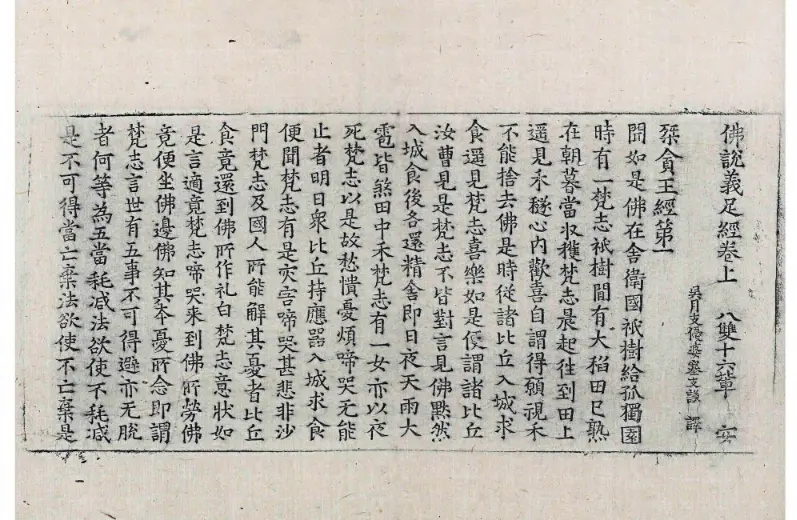 佛說義足經卷上 八雙十六輩 安
吳月支優婆塞支謙 譯
桀貪王經第一
聞如是佛在舍衛國祇樹給孤獨園
時有一梵志祇樹間有大稻田已熟
在朝暮當收穫梵志晨起往到田上
遥見禾穟心內歡喜自謂得願視禾
不能捨去佛是時從諸比丘入城求
食還見梵志喜樂如是便謂諸比丘
汝曹見是梵志不皆對言見佛默然
入城食後各還精舍即日夜天雨大
雹皆煞田中禾梵志有一女亦以夜
死梵志以是故愁憒憂煩啼哭无能
止者明日衆比丘持應器入城求食
便聞梵志有是灾害啼哭甚悲非沙
門梵志及國人所能解其憂者比丘
食竟還到佛所作礼白梵志意狀如
是言適竟梵志啼哭来到佛所勞佛
竟便坐佛邊佛知其本憂所念即謂
梵志言世有五事不可得避亦无脫
者何等為五當耗减法欲使不耗减
是不可得當亡棄法欲使不亡棄是